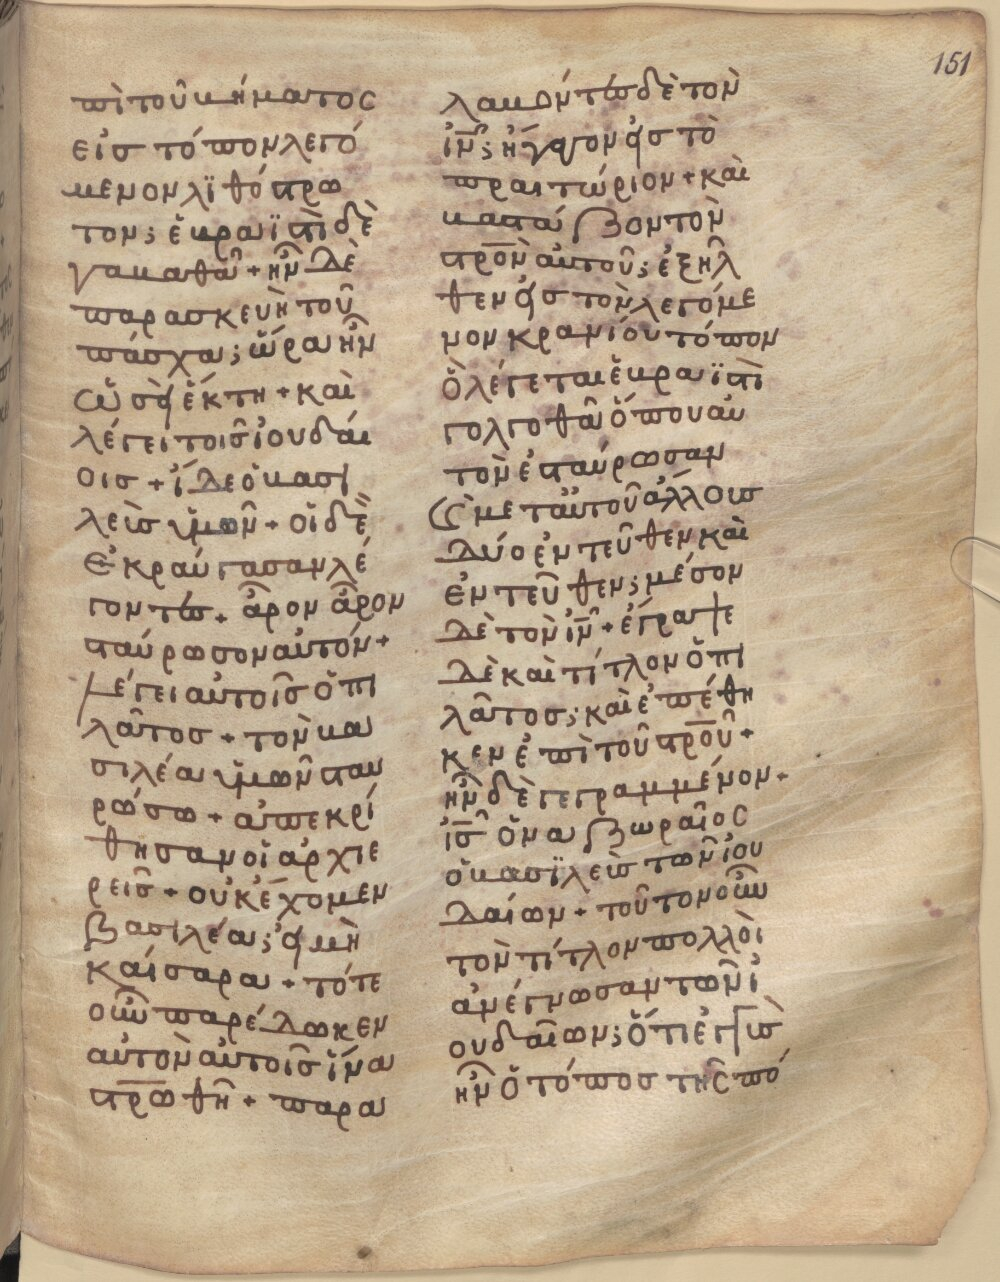 151
πὶ τοῦ βήματοσ
εἰσ τόπον λεγό
μενον λϊθόστρω
τον; ἑβραϊστὶ δὲ
γαβαθᾶ + ἦν δὲ
παρασκευὴ τοῦ
πάσχα; ὥρα ἦν
ὡσεὶ ἕκτη + καὶ
λέγει τοῖσ ἰουδαί
οισ + ἴδε ὁ βασι
λεὺσ ὑμῶν + οἱ δὲ
ἐκραύγασαν λέ
γοντεσ + ἆρον ἆρον
σταύρωσον αὐτόν +
λέγει αὐτοῖσ ὁ πι
λᾶτοσ + τὸν βα
σιλέα ὑμῶν σταυ
ρώσω + ἀπεκρί
θησαν οἱ ἀρχιε
ρεῖσ + οὐκ ἔχομεν
βασιλέα; εἰ μὴ
καίσαρα + τότε
οὖν παρέδωκεν
αὐτὸν αὐτοῖσ ἵνα
στρωθῆ + παρα
λαβόντεσ δὲ τὸν
ἰν; ἤγαγον εἰσ τὸ
πραιτώριον + καὶ
βαστάζοντον
στρον αὐτοῦ; ἐξῆλ
θεν εἰσ τὸν λεγόμε
νον κρανίου τόπον
ὃ λέγεται ἑβραϊστὶ
γολγοθᾶ ὅπου αὐ
τὸν ἐσταύρωσαν
καὶ μετ αὐτοῦ ἄλλουσ
δύο ἐντεῦθεν καὶ
ἐντεῦθεν; μέσον
δὲ τὸν ἰν + ἔγραψε
δὲ καὶ τίτλον ὁ πι
λᾶτοσ; καὶ ἐπέθη
κεν ἐπὶ τοῦ στρου +
ἦν δὲ γεγραμμένον +
ἰσ ὁ ναζωραῖοσ
ὁ βασϊλεὺσ τῶν ἰου
δαίων + τοῦτον οὖν
τὸν τίτλον πολλοὶ
ἀνέγνωσαν τῶν ἰ
ουδαίων; ὅτι ἐγγὺσ
ἦν ὁ τόποσ τῆσ πό